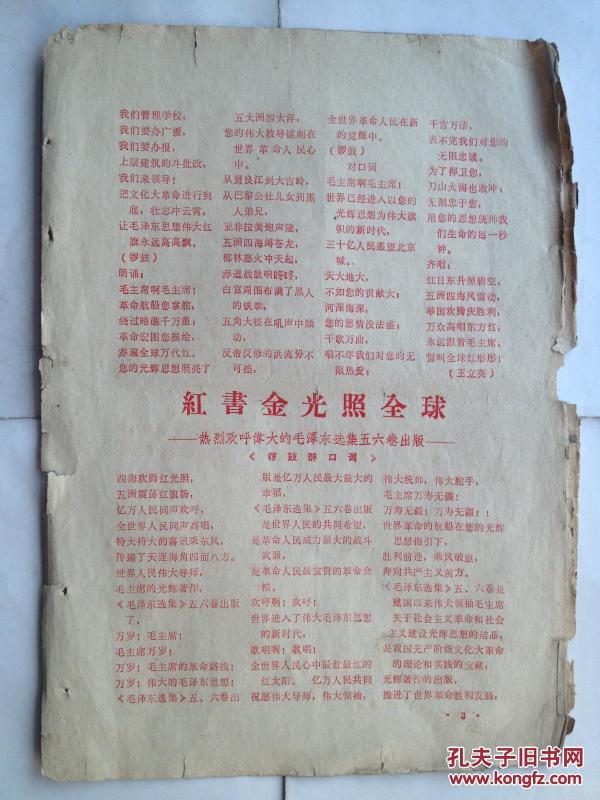 我们管理学校，
我们要办广播，
我们要办报，
上层建筑的斗批改，
我们来领导！
把文化大革命进行到
底，壮志冲云霄，
让毛泽东思想伟大红
旗永远高高飘。
（锣鼓）
朗诵：
毛主席啊毛主席！
革命航船您掌舵，
绕过暗礁千万重；
革命宏图您描绘，
赤遍全球万代红。
您的光辉思想照亮了
五大洲四大洋，
您的伟大教导铭刻在
世界革命人民心
中。
从贤良江到大吉岭，
从巴黎公社儿女到黑
人弟兄，
亚非拉美炮声隆，
五洲四海缚苍龙，
椰林怒火冲天起，
赤道战鼓响咚咚，
白宫周围布满了黑人
的铁拳，
五角大楼在吼声中颤
动，
反帝反修的洪流势不
可挡，
全世界革命人民在新
的觉醒中。
（锣鼓）
对口词
毛主席啊毛主席！
世界已经进入以您的
光辉思想为伟大旗
帜的新时代，
三十亿人民遥望北京
城。
天大地大，
不如您的贡献大；
河深海深，
您的恩情没法盛；
千歌万曲，
唱不尽我们对您的无
限热爱；
千言万语，
表不完我们对您的
无限忠诚。
为了捍卫您，
刀山火海也敢冲；
无限忠于您，
用您的思想统帅我
们生命的每一秒
钟。
齐唱：
红日东升照碧空，
五洲四海风雷动，
举国欢腾庆胜利，
万众高唱东方红，
永远跟着毛主席，
誓叫全球红彤彤！
（王立英）
紅書金光照全球
——热烈欢呼偉大的毛澤东选集五六卷出版——
《锣鼓群口词》
四海欢腾红光照，
五洲震荡红旗扬，
亿万人民同声欢呼，
全世界人民同声高唱，
特大特大的喜讯乘东风，
传遍了天涯海角四面八方。
世界人民伟大导师，
毛主席的光辉著作，
《毛泽东选集》五六卷出版
了，
万岁！毛主席！
毛主席万岁！
万岁！毛主席的革命路线！
万岁！伟大的毛泽东思想！
《毛泽东选集》五、六卷出
版是亿万人民最大最大的
幸福，
《毛泽东选集》五六卷出版
是世界人民的共同希望，
是革命人民威力最大的战斗
武器，
是革命人民最宝贵的革命食
粮。
欢呼啊！欢呼！
世界进入了伟大毛泽东思想
的新时代，
歌唱啊！歌唱！
全世界人民心中最红最红的
红太阳。 亿万人民共同
祝愿伟大导师，伟大领袖，
伟大统帅，伟大舵手，
毛主席万寿无疆！
万寿无疆！万寿无疆！！
世界革命的航船在您的光辉
思想指引下，
胜利前进，乘风破浪，
奔向共产主义前方。
《毛泽东选集》五、六卷是
建国以来伟大领袖毛主席
关于社会主义革命和社会
主义建设光辉思想的结晶，
是我国无产阶级文化大革命
的理论和实践的宝藏，
光辉著作的出版，
推进了世界革命胜利发展，
·3·
孔夫子旧书网
www.kongfz.com